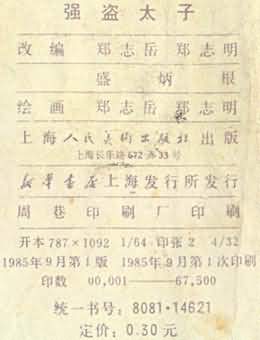 强盗太子
改编 郑志岳 郑志明
盛炳根
绘画 郑志岳 郑志明
上海人民美术出版社出版
上海长乐路672弄33号
新华书店上海发行所发行
周巷印刷厂印刷
开本787×1092 1/64 印张2 4/32
1985年9月第1版 1985年9月第1次印刷
印数 00,001——67,500
统一书号：8081·14621
定价：0.30元